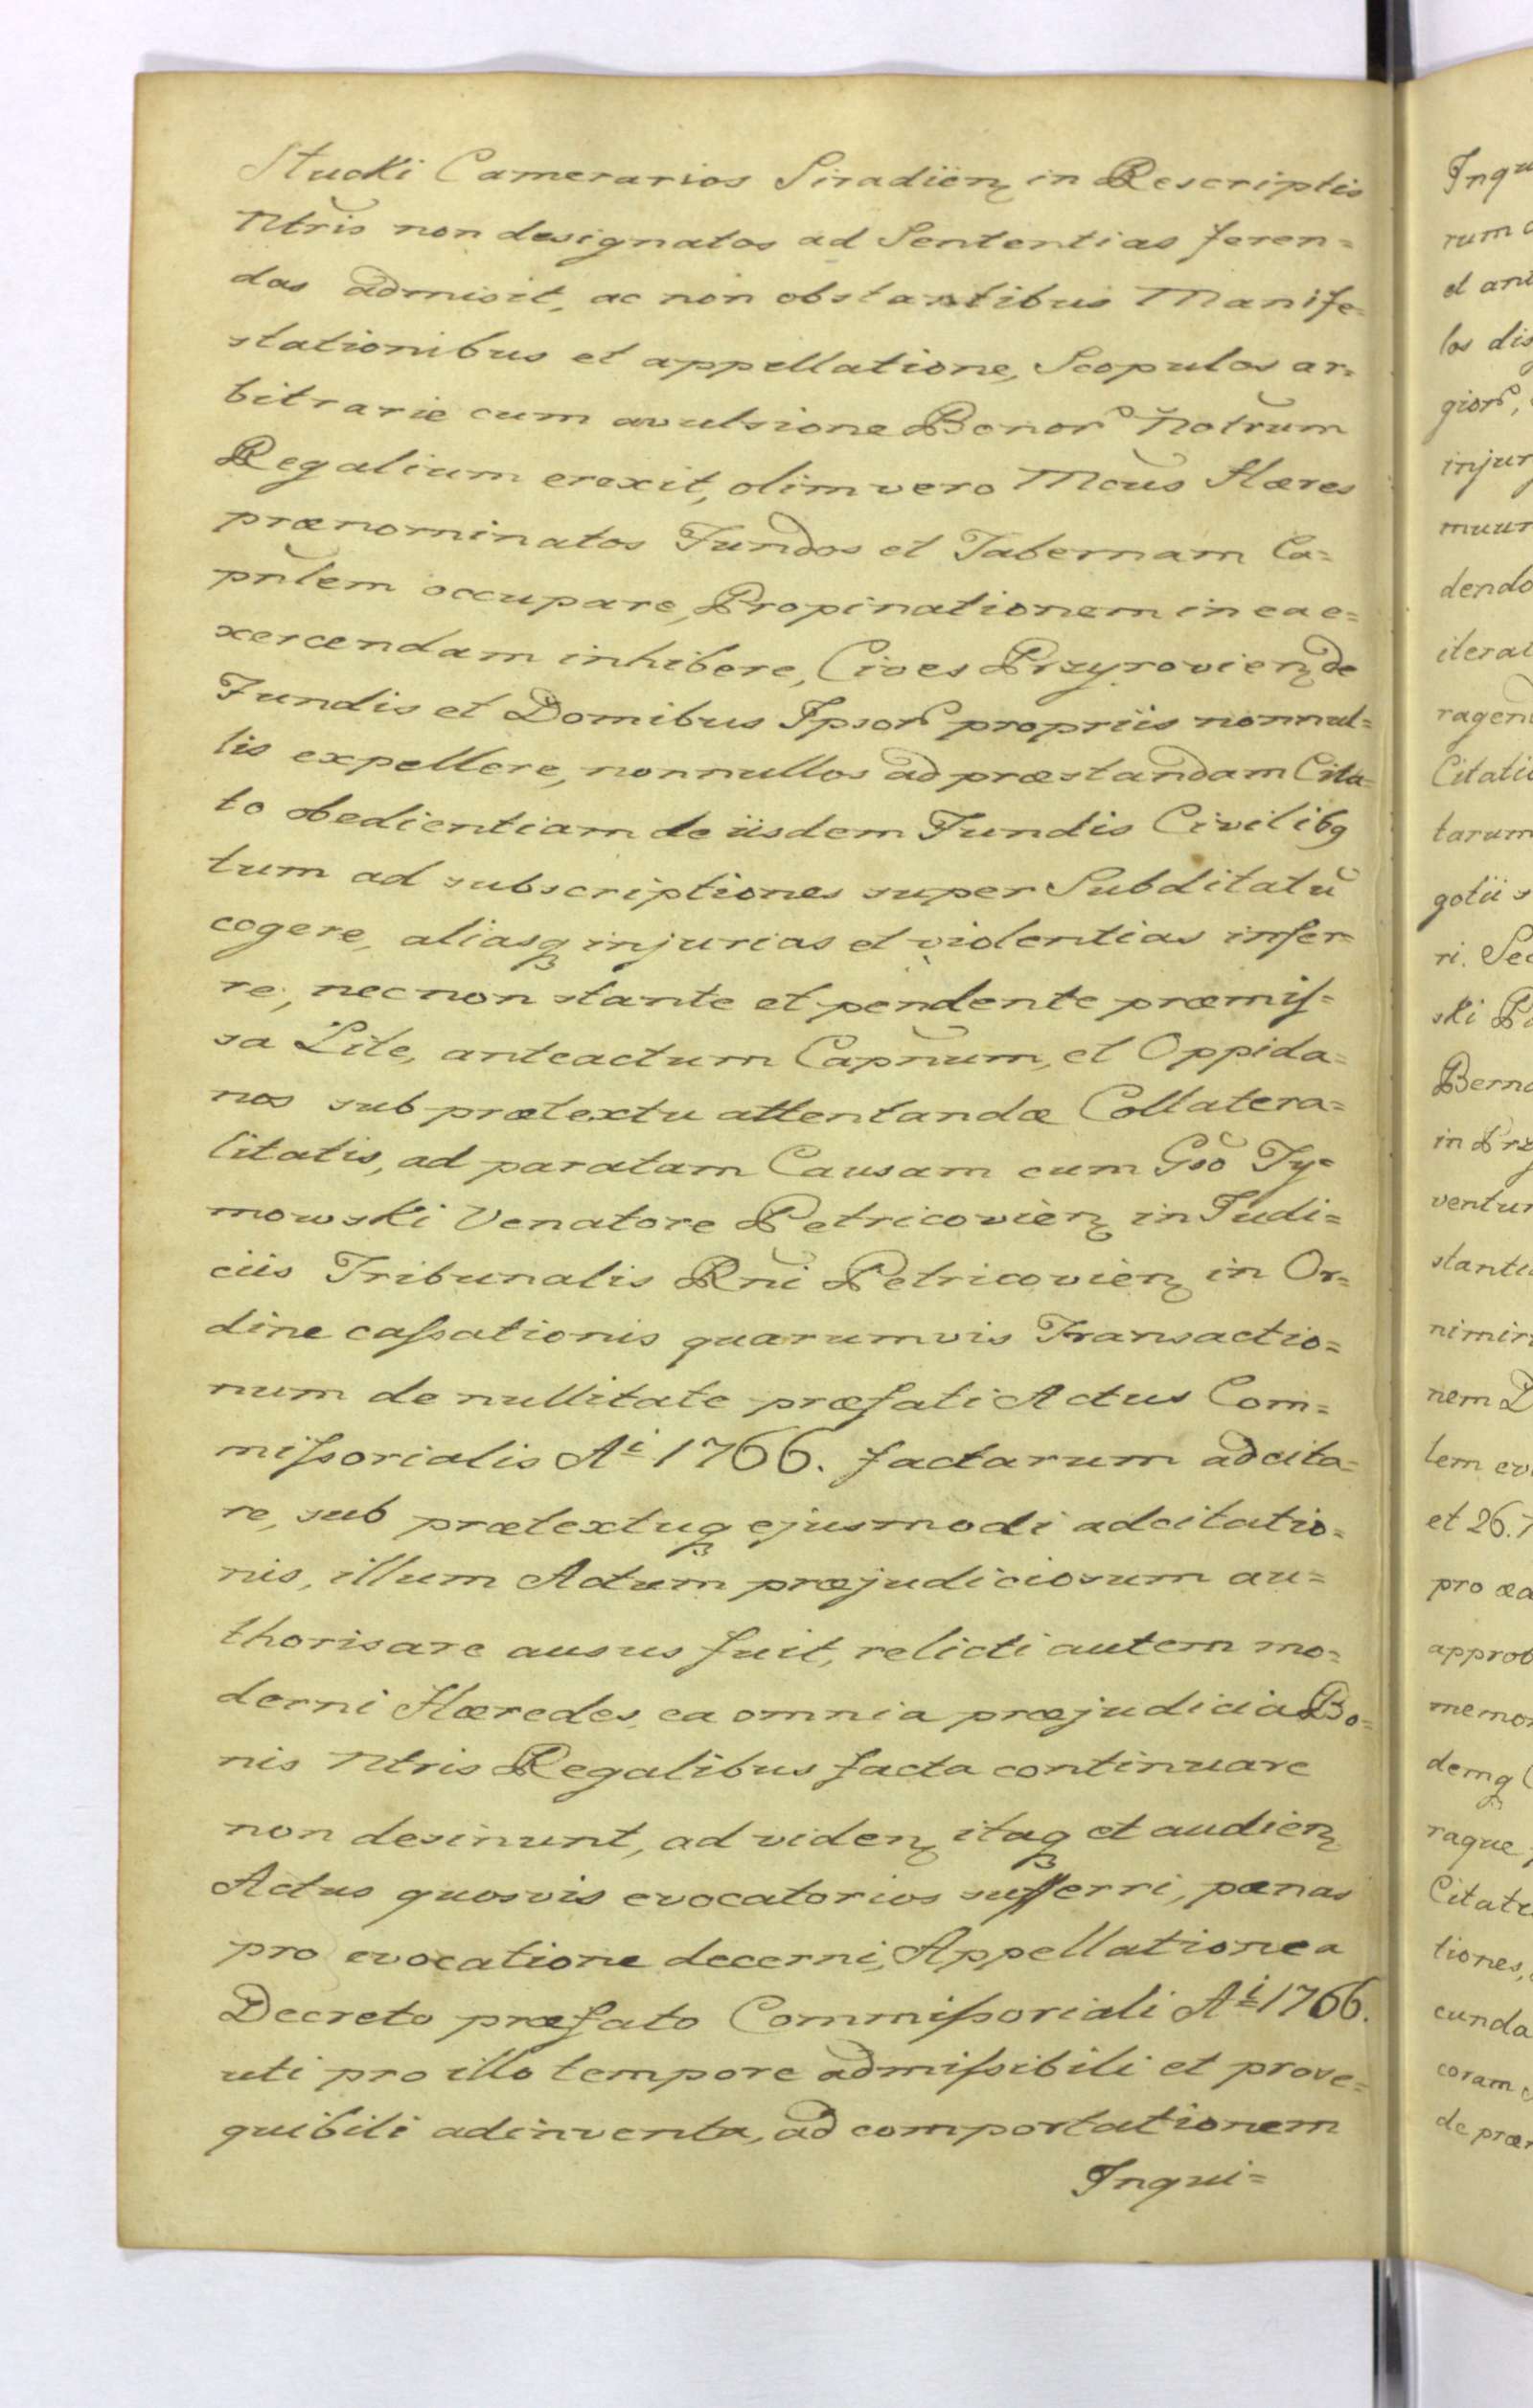 Stucki Camerarios Siradień in Rescriptis
Ntris non designatos ad Sententias feren=
das admisit, ac non obstantibus Manife=
stationibus et appellatione, Scopulos ar=
bitrarie cum avulsione Bonor̃ Notrum
Regalium erexit, olim vero Mcus Hæres
prænominatos Fundos et Tabernam Ca=
pñlem occupare, Propinationem in ea e=
xercendam inhibere, Cives Przyrovień de
Fundis et Domibus Ipsor̃ propriis nonnul=
lis expellere, nonnullos ad præstandam Cita=
to obedientiam de iisdem Fundis Civilibꝯ
tum ad subscriptiones super Subditatũ
cogere, aliasqꝫ injurias et violentias infer=
re, necnon stante et pendente præmiſ=
sa Lite, anteactum Capñum, et Oppida=
nos sub prætextu attentandæ Collatera=
litatis, ad paratam Causam cum Gsõ Ty=
mowski Venatore Petricovień in Judi=
ciis Tribunalis Rñi Petricovień in Or=
dine caſsationis quarumvis Transactio=
num de nullitate præfati Actus Com=
miſsorialis Aⁱ 1766. factarum adcita=
re, sub prætextuqꝫ ejusmodi adcitatio=
nis, illum Actum præjudiciosum au=
thorisare ausus fuit, relicti autem mo=
derni Hæredes, ea omnia præjudicia Bo=
nis Ntris Regalibus facta continuare
non desinunt, ad videń itaqꝫ et audień
Actus quosvis evocatorios sufferri, pœnas
pro evocatione decerni, Appellatione a
Decreto præfato Commiſsoriali Aⁱ 1766.
uti pro illo tempore admiſsibili et prose=
quibili adinventa, ad comportationem
Inqui=
Inqu
rum
et ani
los dis
gior̃,
injur
muur
dendo
iterat
ragen
Citatio
tarum
gotii s
ri. Sec
ski P
Berna
in Prz
ventur
stantia
nimir
nem D
lem ev
et 26.
pro ea
approb
memor
demqꝫ
raque
Citato
tiones,
cunda
coram
de præn